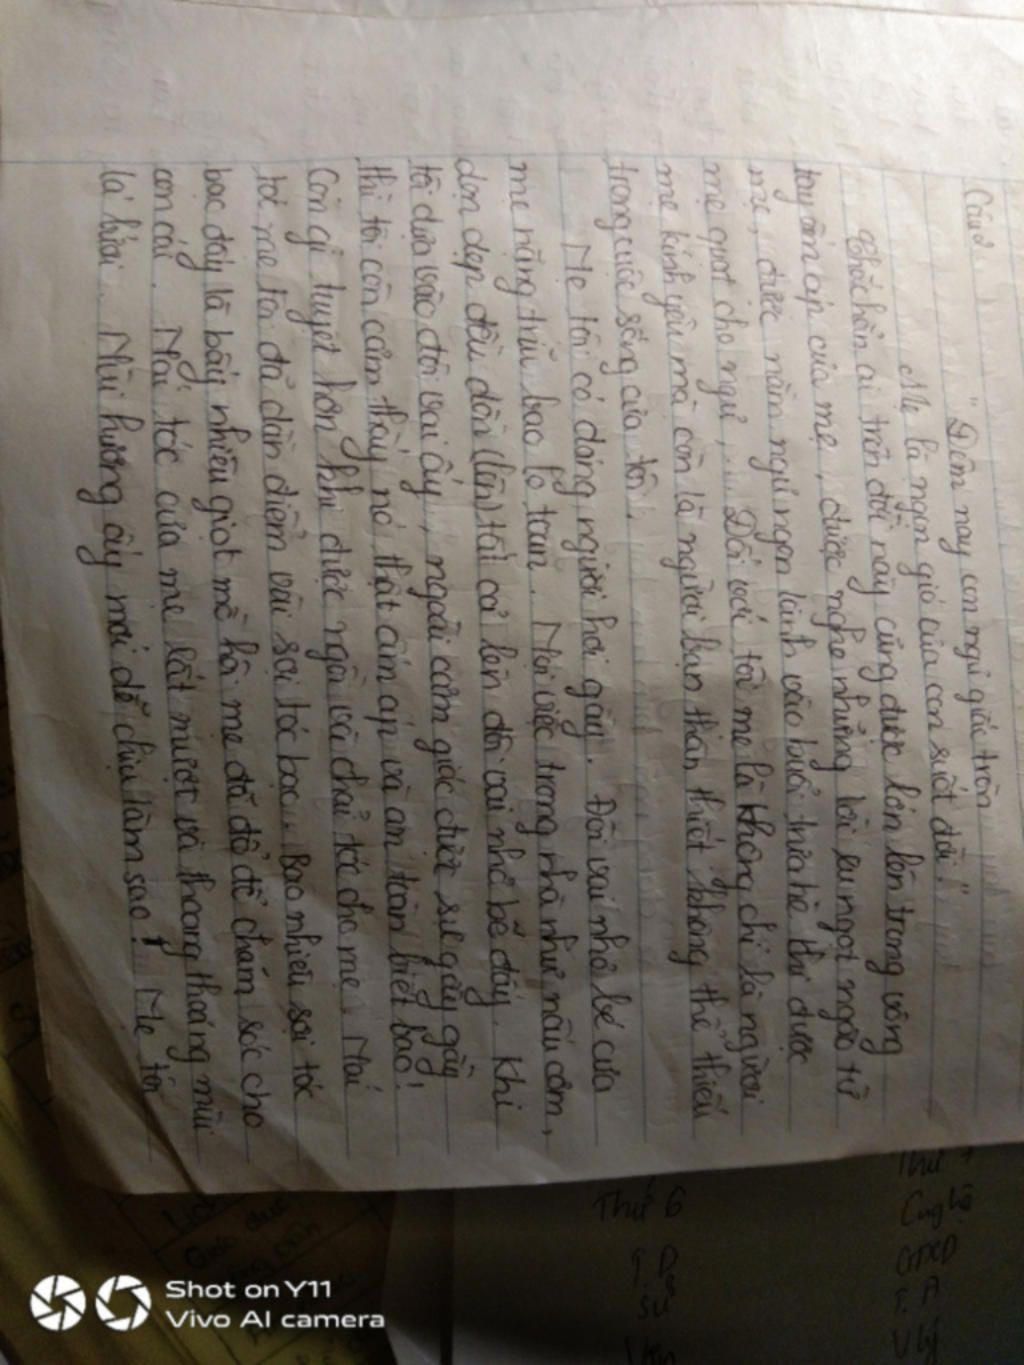 Câu 2.
"Đêm nay con ngủ giấc tròn
Mẹ là ngọn gió của con suốt đời."
Chắc hẳn ai trên đời này cũng được lớn lên trong vòng
tay ấm áp của mẹ, được nghe những lời ru ngọt ngào từ
mẹ, được nằm ngủ ngon lành vào buổi trưa hè thì được
mẹ quạt cho ngủ,... Đối với tôi mẹ là không chỉ là người
mẹ kính yêu mà còn là người bạn thân thiết không thể thiếu
trong cuộc sống của tôi.
Mẹ tôi có dáng người hơi gầy. Đôi vai nhỏ bé của
mẹ nặng trĩu bao lo toan. Mọi việc trong nhà như nấu cơm,
dọn dẹp đều dồn (lên) tất cả lên đôi vai nhỏ bé đấy. Khi
tôi dựa vào đôi vai ấy, ngoài cảm giác được sự gầy gầy
thì tôi còn cảm thấy nó thật ấm áp và an toàn biết bao!
Còn gì tuyệt hơn khi được ngồi và chải tóc cho mẹ. Mái
tóc mẹ tôi đã dần điểm vài sợi tóc bạc. Bao nhiêu sợi tóc
bạc đấy là bấy nhiêu giọt mồ hôi mẹ đã đổ để chăm sóc cho
con cái. Mái tóc của mẹ lất mượt và thoang thoảng mùi
lá bưởi. Mùi hương ấy mới dễ chịu làm sao! Mẹ tôi
Thứ 6
T.D
Sử
Văn
Thứ 7
Cnghệ
GDCD
T.A
Vlý
Giáo dục
Shot on Y11
Vivo AI camera